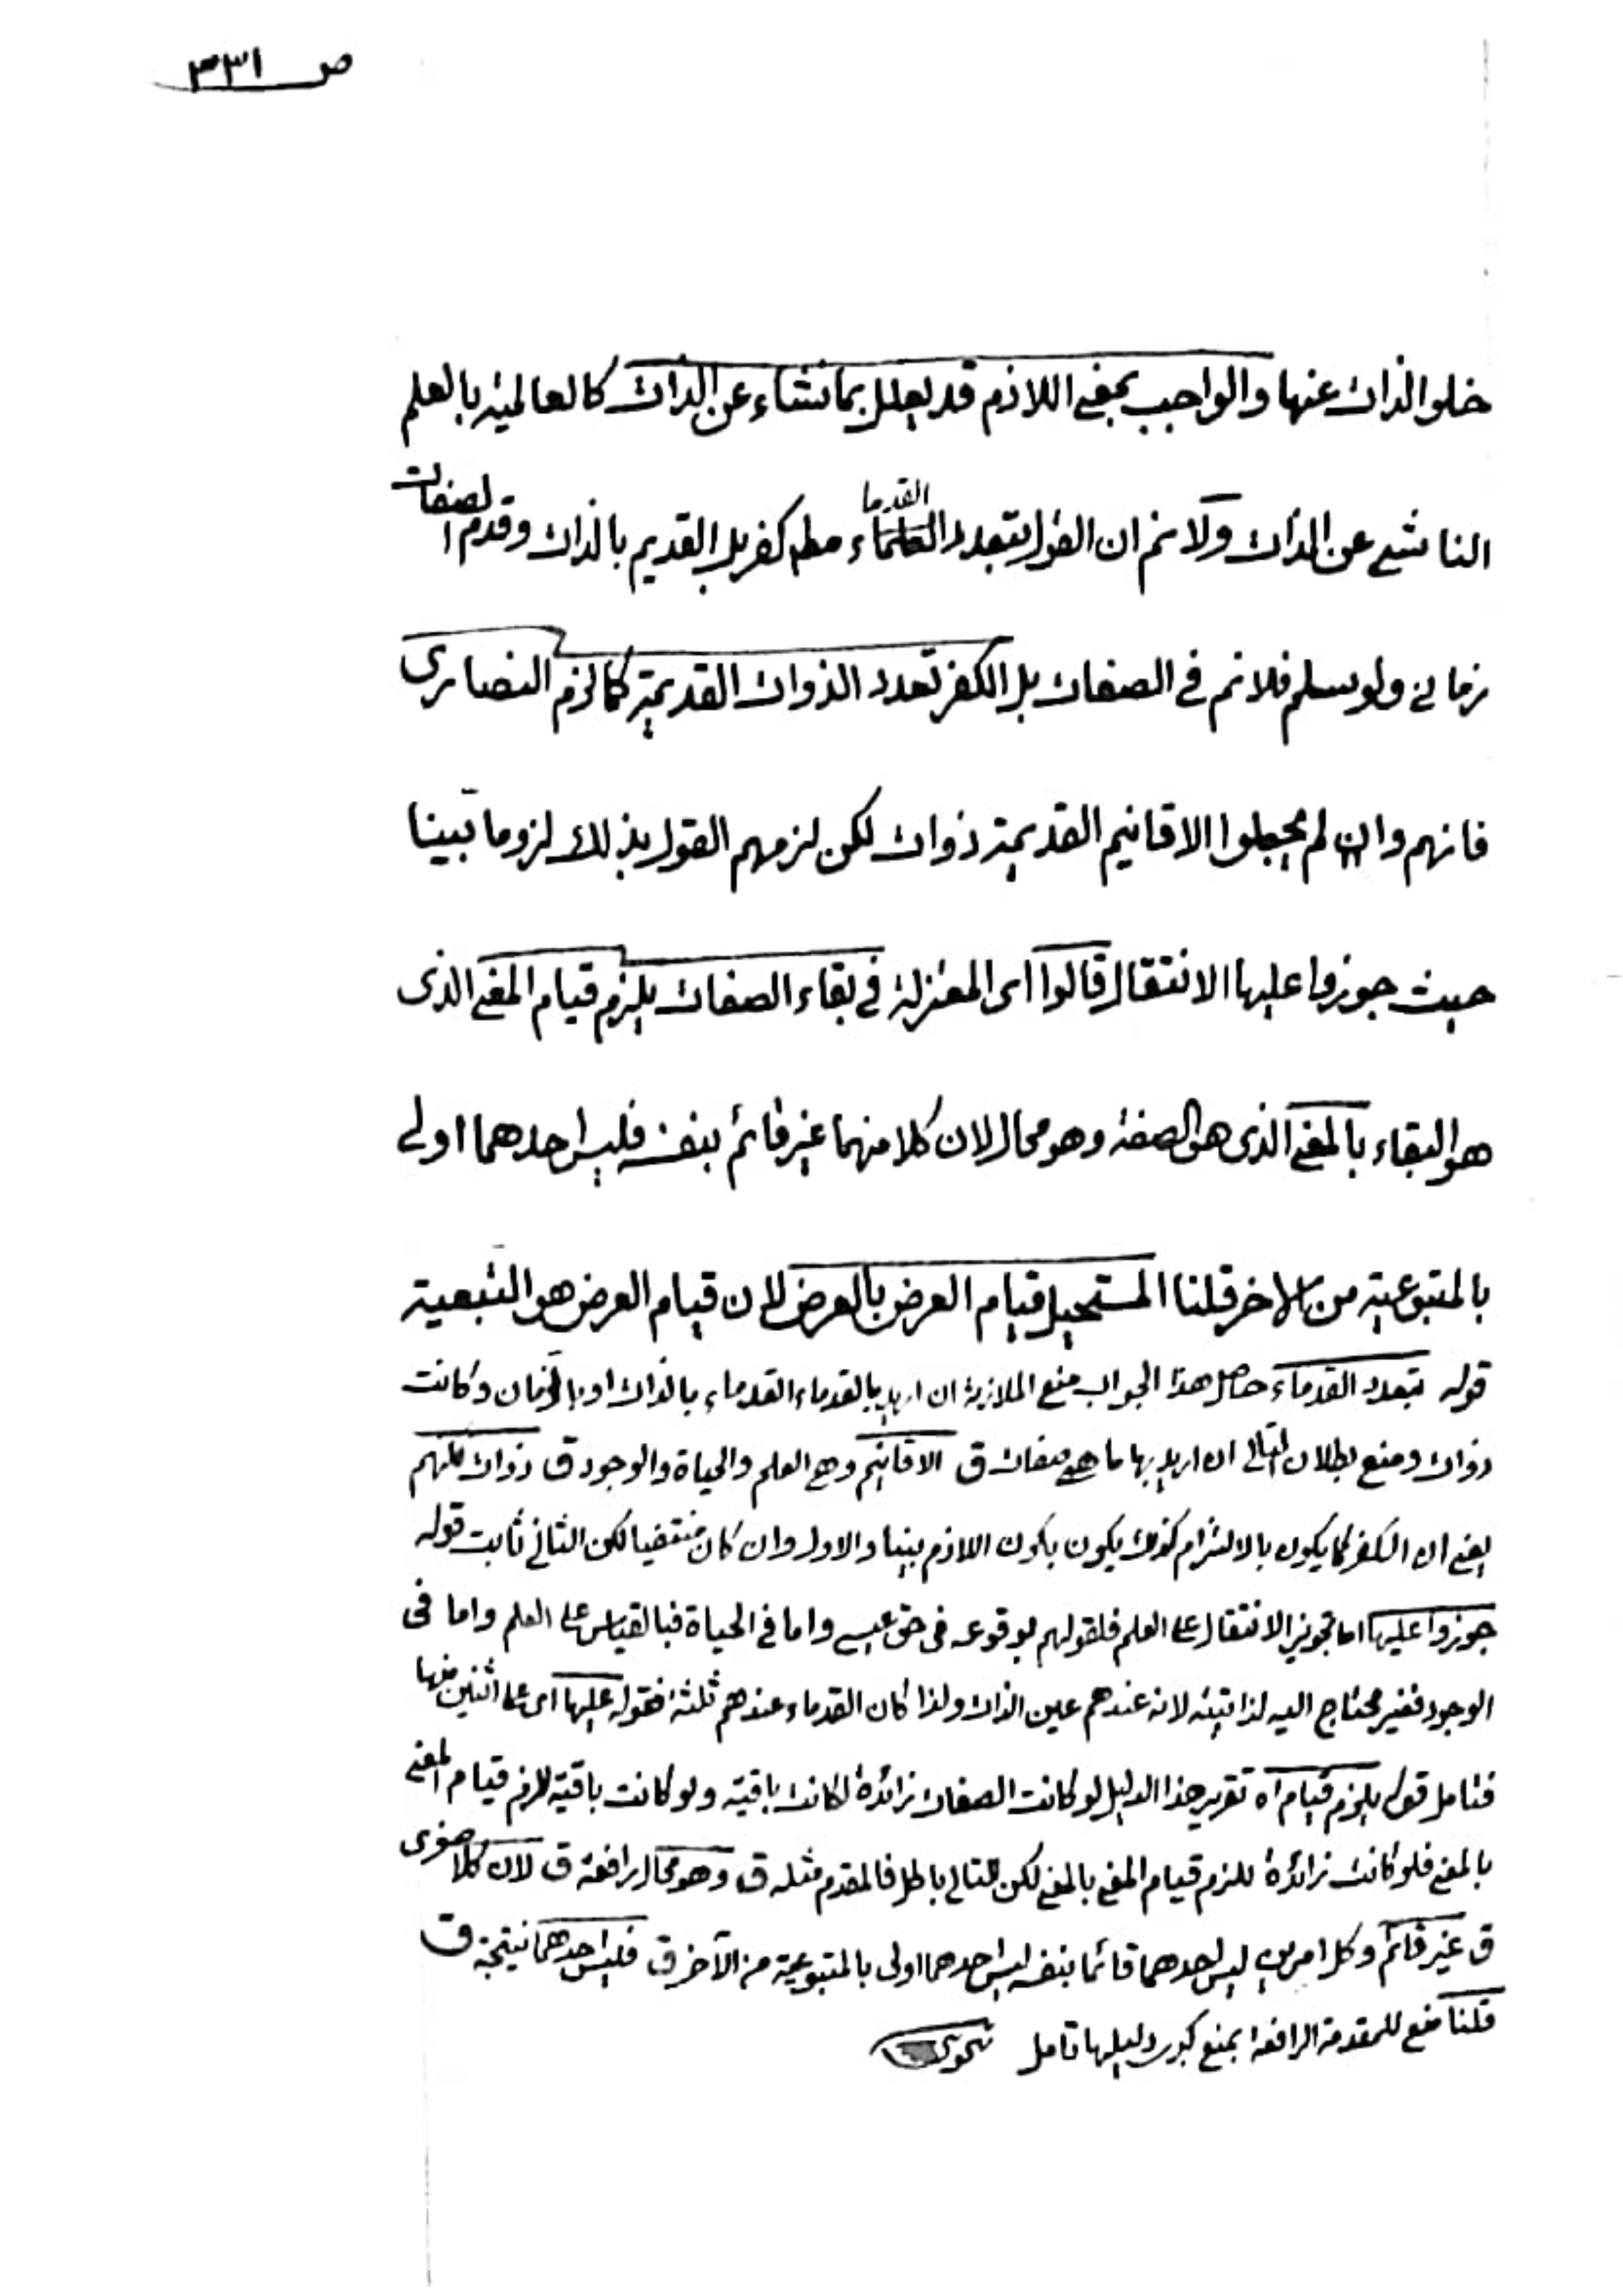 ص ٣٣١
خلو الذات عنها والواجب بمعنى اللازم قد يعلل بما نشاء عن الذات كالعالمية بالعلم
الناشى عن الذات ولا نم ان القول بتعدد العلماء القدما مطلـ كفر بل القديم بالذات وقدم الصفات
زمانى ولو سلم فلا نم فى الصفات بل الكفر تعدد الذوات القديمة كما لزم النصارى
فانهم وان لم يجعلوا الاقانيم القديمة ذوات لكن لزمهم القول بذلك لزوما بينا
حيث جوزوا عليها الانتقال قالوا اى المعتزلة فى بقاء الصفات يلزم قيام المعنى الذى
هو البقاء بالمعنى الذى هو الصفة وهو محال لان كلا منهما غير قائم بنفسه فليس احدهما اولى
بالمتبوعية من الاخر قلنا المستحيل قيام العرض بالعرض لان قيام العرض هو التبعية
قوله بتعدد القدماء حاصل هذا الجواب منع الملازمة ان اريد بالقدماء القدماء بالذات او بالزمان وكانت
ذوات ومنع بطلان التالى ان اريد بها ما هى صفات ق الاقانيم وهى العلم والحياة والوجود ق ذوات لكنهم
يعنى ان الكفر كما يكون بالالتزام كذلك يكون بكون اللازم بينا والاول وان كان منتفيا لكن الثانى ثابت قوله
جوزوا عليها اما تجويز الانتقال على العلم فلقولهم بوقوعه فى حق عيسى واما فى الحياة فبالقياس على العلم واما فى
الوجود فغير محتاج اليه لذاتيته لانه عندهم عين الذات ولذا كان القدماء عندهم ثلثة فقوله عليها اى على اثنين منها
فتامل قوله يلزم قيام اه تقرير هذا الدليل لو كانت الصفات زائدة لكانت باقية ولو كانت باقية للزم قيام المعنى
بالمعنى فلو كانت زائدة للزم قيام المعنى بالمعنى لكن التالى باطل فالمقدم مثله ق وهو محال رافعة ق لان كلا صغرى
ق غير قائم وكل امرين ليس احدهما قائما بنفسه ليس احدهما اولى بالمتبوعية من الآخر ق فليس احدهما نتيجة ق
قلنا منع للمقدمة الرافعة بمنع كبرى دليلها تامل